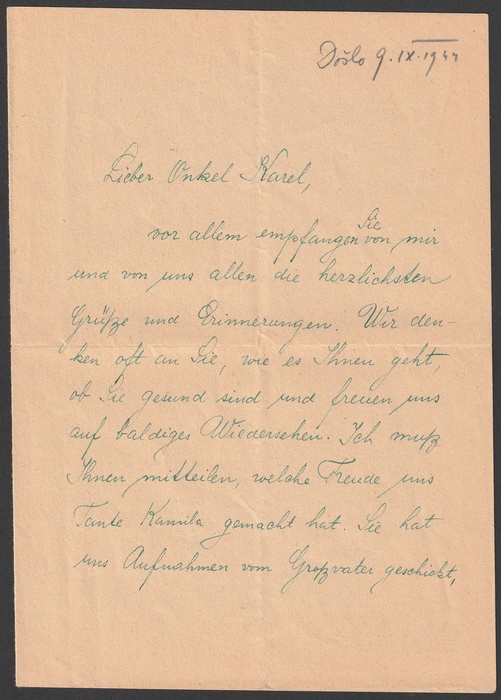 Došlo 9.IX.1944
Lieber Onkel Karel,
vor allem empfangen Sie von mir
und von uns allen die herzlichsten
Grüße und Erinnerungen. Wir den-
ken oft an Sie, wie es Ihnen geht,
ob Sie gesund sind und freuen uns
auf baldiges Wiedersehen. Ich muß
Ihnen mitteilen, welche Freude uns
Tante Kamila gemacht hat. Sie hat
uns Aufnahmen vom Großvater geschickt,